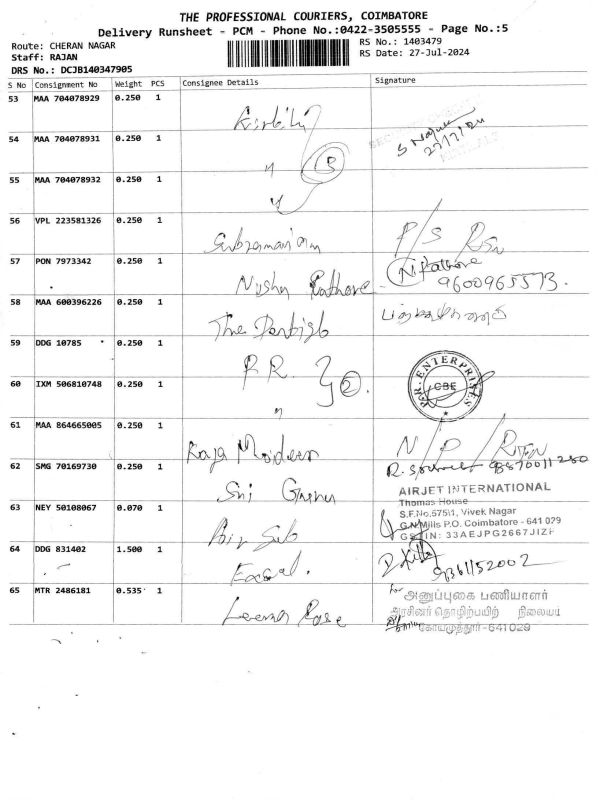 THE PROFESSIONAL COURIERS, COIMBATORE
Delivery Runsheet - PCM - Phone No.:0422-3505555 - Page No.:5
Route: CHERAN NAGAR
Staff: RAJAN
DRS No.: DCJB140347905
RS No.: 1403479
RS Date: 27-Jul-2024
S No Consignment No Weight PCS Consignee Details Signature
53 MAA 704078929 0.250 1
54 MAA 704078931 0.250 1 5
27/7/24
55 MAA 704078932 0.250 1
56 VPL 223581326 0.250 1 Subramaniam
57 PON 7973342 0.250 1 Nisha Rathore N. Rathore
9600965573.
58 MAA 600396226 0.250 1 The Dentist
59 DDG 10785 * 0.250 1 P.R. 2
P.R. ENTERPRISES
CBE
60 IXM 506810748 0.250 1 "
61 MAA 864665005 0.250 1 Raja Moideen N/P/
62 SMG 70169730 0.250 1 Sri 9870011280
63 NEY 50108067 0.070 1
AIRJET INTERNATIONAL
Thomas House
S.F.No.575/1, Vivek Nagar
G.N.Mills P.O. Coimbatore - 641 029
GSTIN: 33AEJPG2667J1ZF
64 DDG 831402 1.500 1
9361152002
65 MTR 2486181 0.535 1 Leema Rose
For அனுப்புகை பணியாளர்
அரசினர் தொழிற்பயிற் நிலையம்
கோயமுத்தூர்-641 029